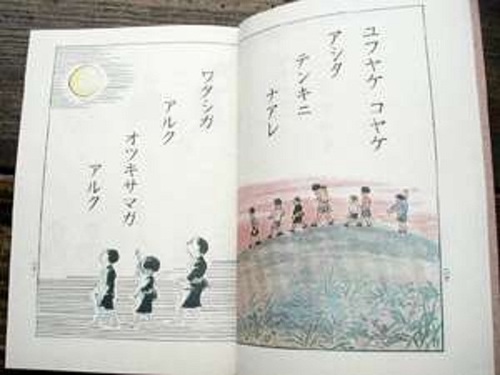 ユフヤケ コヤケ
アシタ
テンキニ
ナアレ
ワタシガ
アルク
オツキサマガ
アルク